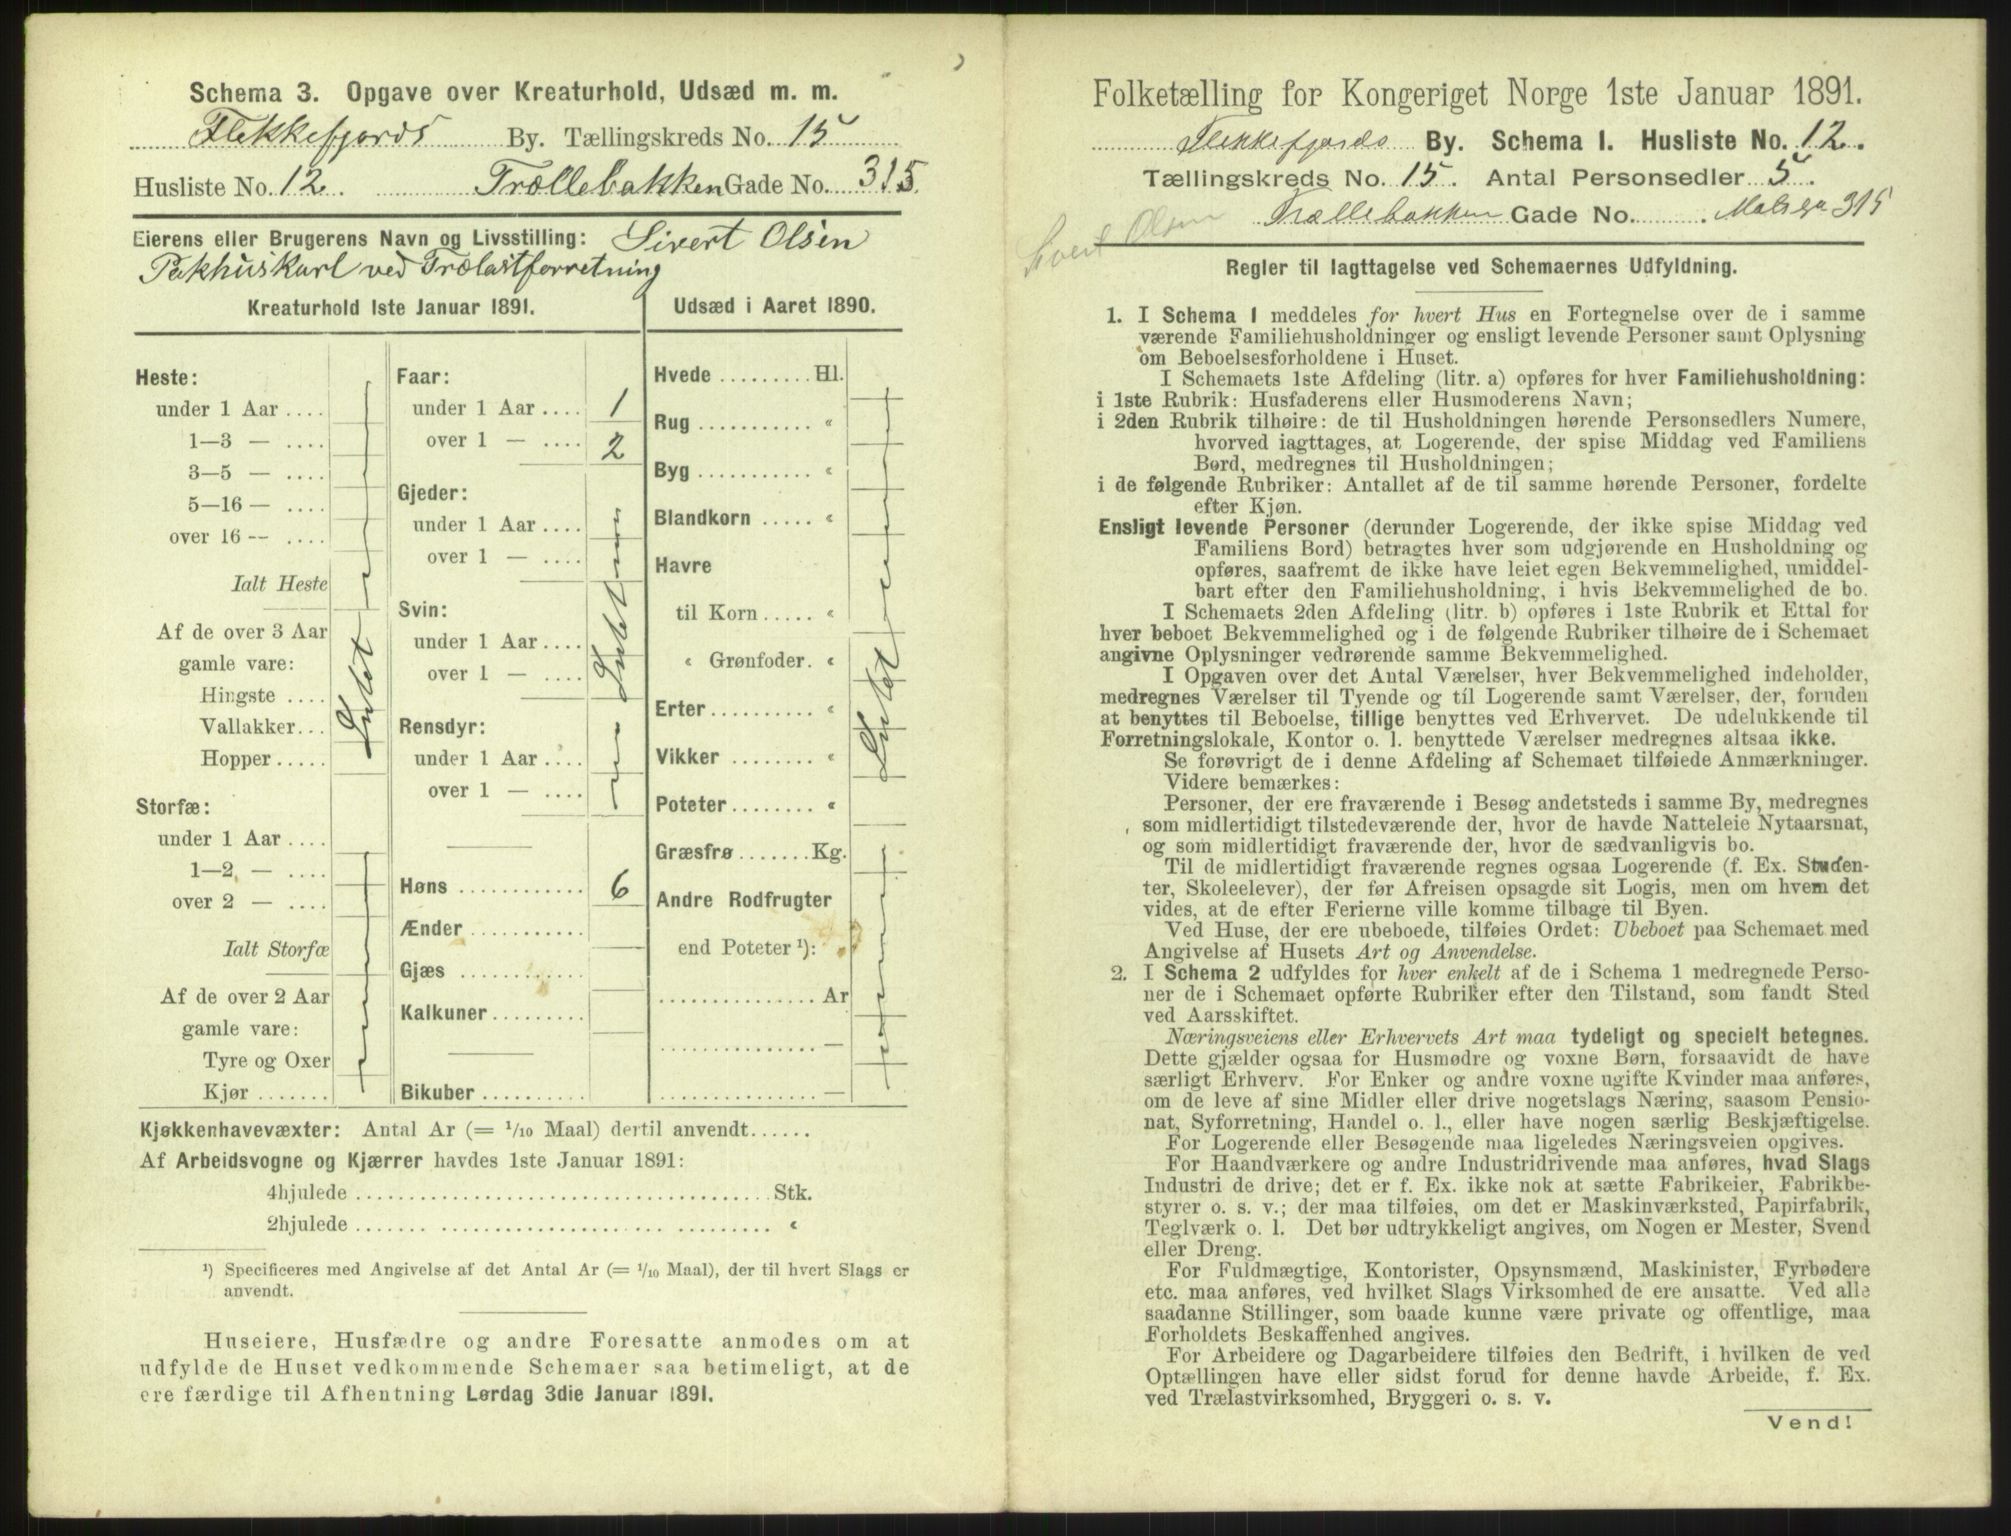 Schema 3. Opgave over Kreaturhold, Udsæd m. m.
Flekkefjords By. Tællingskreds No. 15
Husliste No. 12 Trællebakken Gade No. 315.
Eierens eller Brugerens Navn og Livsstilling: Sivert Olsen
Pakhuskarl ved Trælastforretning
Kreaturhold 1ste Januar 1891.
Heste:
under 1 Aar ....
1—3 — ....
3—5 — ....
5—16 — ....
over 16 -- ....
Ialt Heste
Af de over 3 Aar
gamle vare:
Hingste ....
Vallakker...
Hopper .....
Intet
Storfæ:
under 1 Aar ....
1—2 — ....
over 2 — ....
Ialt Storfæ
Af de over 2 Aar
gamle vare:
Tyre og Oxer
Kjør .......
Faar:
under 1 Aar .... 1
over 1 — .... 2
Gjeder:
under 1 Aar ....
over 1 — ....
Svin:
under 1 Aar ....
over 1 — ....
Intet
Rensdyr:
under 1 Aar ....
over 1 — ....
Høns ............ 6
Ænder ...........
Gjæs ............
Kalkuner.........
Bikuber ..........
Udsæd i Aaret 1890.
Hvede ......... Hl.
Rug ........... «
Byg ........... «
Blandkorn ..... «
Havre
til Korn ..... «
« Grønfoder. «
Erter.......... «
Vikker ........ «
Poteter........ «
Intet
Græsfrø.......Kg.
Andre Rodfrugter
end Poteter ¹):
............... Ar
............... —
............... —
Kjøkkenhavevæxter: Antal Ar (= 1/10 Maal) dertil anvendt......
Af Arbeidsvogne og Kjærrer havdes 1ste Januar 1891:
4hjulede ...................................... Stk.
2hjulede ...................................... «
¹) Specificeres med Angivelse af det Antal Ar (= 1/10 Maal), der til hvert Slags er
anvendt.
Huseiere, Husfædre og andre Foresatte anmodes om at
udfylde de Huset vedkommende Schemaer saa betimeligt, at de
ere færdige til Afhentning Lørdag 3die Januar 1891.
Folketælling for Kongeriget Norge 1ste Januar 1891.
Flekkefjords By. Schema I. Husliste No. 12.
Tællingskreds No. 15. Antal Personsedler 5.
Trællebakken Gade No. . Matr. 315
Sivert Olsen
Regler til Iagttagelse ved Schemaernes Udfyldning.
1. I Schema 1 meddeles for hvert Hus en Fortegnelse over de i samme
værende Familiehusholdninger og ensligt levende Personer samt Oplysning
om Beboelsesforholdene i Huset.
I Schemaets 1ste Afdeling (litr. a) opføres for hver Familiehusholdning:
i 1ste Rubrik: Husfaderens eller Husmoderens Navn;
i 2den Rubrik tilhøire: de til Husholdningen hørende Personsedlers Numere,
hvorved iagttages, at Logerende, der spise Middag ved Familiens
Bord, medregnes til Husholdningen;
i de følgende Rubriker: Antallet af de til samme hørende Personer, fordelte
efter Kjøn.
Ensligt levende Personer (derunder Logerende, der ikke spise Middag ved
Familiens Bord) betragtes hver som udgjørende en Husholdning og
opføres, saafremt de ikke have leiet egen Bekvemmelighed, umiddel-
bart efter den Familiehusholdning, i hvis Bekvemmelighed de bo.
I Schemaets 2den Afdeling (litr. b) opføres i 1ste Rubrik et Ettal for
hver beboet Bekvemmelighed og i de følgende Rubriker tilhøire de i Schemaet
angivne Oplysninger vedrørende samme Bekvemmelighed.
I Opgaven over det Antal Værelser, hver Bekvemmelighed indeholder,
medregnes Værelser til Tyende og til Logerende samt Værelser, der, foruden
at benyttes til Beboelse, tillige benyttes ved Erhvervet. De udelukkende til
Forretningslokale, Kontor o. l. benyttede Værelser medregnes altsaa ikke.
Se forøvrigt de i denne Afdeling af Schemaet tilføiede Anmærkninger.
Videre bemærkes:
Personer, der ere fraværende i Besøg andetsteds i samme By, medregnes
som midlertidigt tilstedeværende der, hvor de havde Natteleie Nytaarsnat,
og som midlertidigt fraværende der, hvor de sædvanligvis bo.
Til de midlertidigt fraværende regnes ogsaa Logerende (f. Ex. Studen-
ter, Skoleelever), der før Afreisen opsagde sit Logis, men om hvem det
vides, at de efter Ferierne ville komme tilbage til Byen.
Ved Huse, der ere ubeboede, tilføies Ordet: Ubeboet paa Schemaet med
Angivelse af Husets Art og Anvendelse.
2. I Schema 2 udfyldes for hver enkelt af de i Schema 1 medregnede Perso-
ner de i Schemaet opførte Rubriker efter den Tilstand, som fandt Sted
ved Aarsskiftet.
Næringsveiens eller Erhvervets Art maa tydeligt og specielt betegnes.
Dette gjælder ogsaa for Husmødre og voxne Børn, forsaavidt de have
særligt Erhverv. For Enker og andre voxne ugifte Kvinder maa anføres,
om de leve af sine Midler eller drive nogetslags Næring, saasom Pensio-
nat, Syforretning, Handel o. l., eller have nogen særlig Beskjæftigelse.
For Logerende eller Besøgende maa ligeledes Næringsveien opgives.
For Haandværkere og andre Industridrivende maa anføres, hvad Slags
Industri de drive; det er f. Ex. ikke nok at sætte Fabrikeier, Fabrikbe-
styrer o. s. v.; der maa tilføies, om det er Maskinværksted, Papirfabrik,
Teglværk o. l. Det bør udtrykkeligt angives, om Nogen er Mester, Svend
eller Dreng.
For Fuldmægtige, Kontorister, Opsynsmænd, Maskinister, Fyrbødere
etc. maa anføres, ved hvilket Slags Virksomhed de ere ansatte. Ved alle
saadanne Stillinger, som baade kunne være private og offentlige, maa
Forholdets Beskaffenhed angives.
For Arbeidere og Dagarbeidere tilføies den Bedrift, i hvilken de ved
Optællingen have eller sidst forud for denne havde Arbeide, f. Ex.
ved Trælastvirksomhed, Bryggeri o. s. v.
Vend!